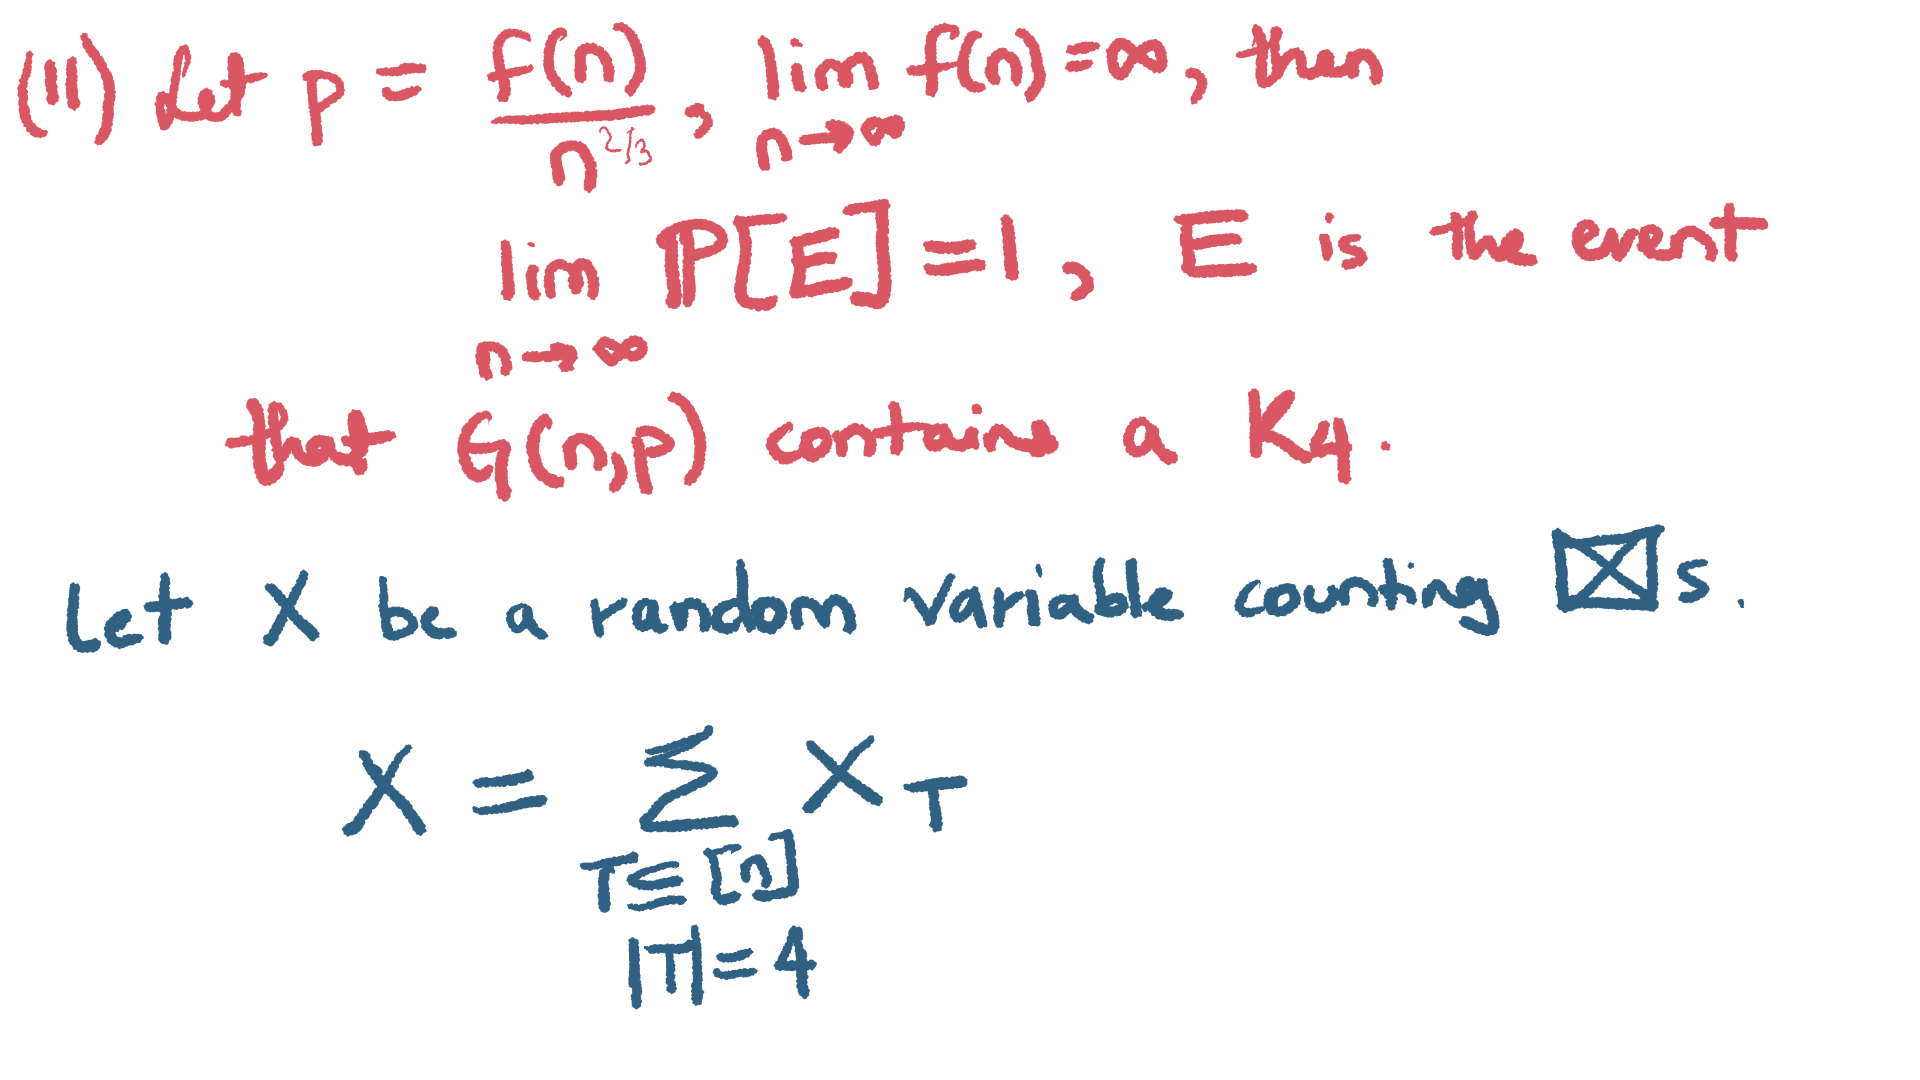 (11) Let p = f(n)/n^{2/3}, lim_{n→∞} f(n) = ∞, then
lim_{n→∞} ℙ[E] = 1, E is the event
that G(n,p) contains a K₄.
Let X be a random variable counting ⊠s.
X = Σ_{T⊆[n], |T|=4} X_T